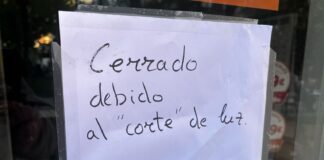 Cerrado
debido
al "corte" de luz.